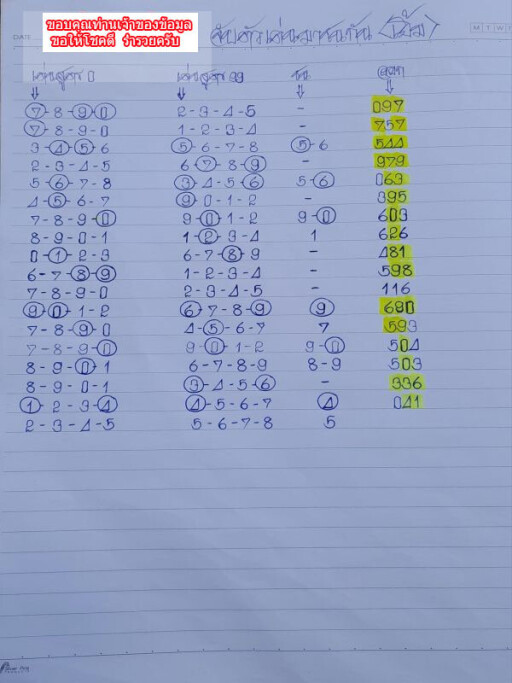 ขอบคุณท่านเจ้าของข้อมูล
ขอให้โชคดี ร่ำรวยครับ
DATE
M T W T
เด่นสูตร 0 เด่นสูตร 99 ชน
7-8-9-0 2-3-4-5 - 097
7-8-9-0 1-2-3-4 - 757
3-4-5-6 5-6-7-8 5-6 544
2-3-4-5 6-7-8-9 - 979
5-6-7-8 3-4-5-6 5-6 063
4-5-6-7 9-0-1-2 - 395
7-8-9-0 9-0-1-2 9-0 603
8-9-0-1 1-2-3-4 1 626
0-1-2-3 6-7-8-9 - 481
6-7-8-9 1-2-3-4 - 598
7-8-9-0 2-3-4-5 - 116
9-0-1-2 6-7-8-9 9 680
7-8-9-0 4-5-6-7 7 593
7-8-9-0 9-0-1-2 9-0 504
8-9-0-1 6-7-8-9 8-9 503
8-9-0-1 3-4-5-6 - 336
1-2-3-4 4-5-6-7 4 041
2-3-4-5 5-6-7-8 5